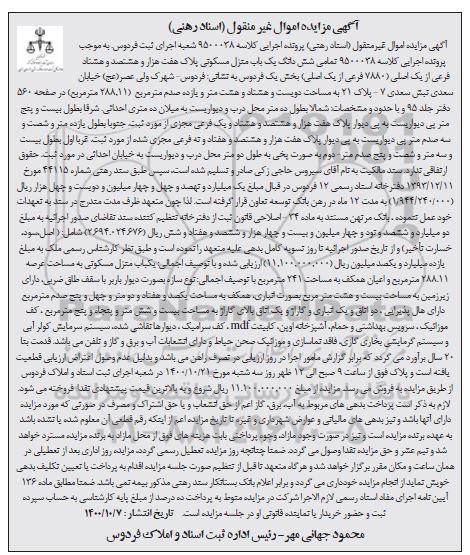 آگهی مزایده اموال غیر منقول (اسناد رهنی)
آگهی مزایده اموال غیرمنقول (اسناد رهنی) پرونده اجرایی کلاسه ۹۵۰۰۰۳۸ شعبه اجرای ثبت فردوس. به موجب
پرونده اجرایی کلاسه ۹۵۰۰۰۳۸ تمامی شش دانگ یک باب منزل مسکونی پلاک هفت هزار و هشتصد و هشتاد
فرعی از یک اصلی (۷۸۸۰ فرعی از یک اصلی) بخش یک فردوس به نشانی: فردوس- شهرک ولی عصر(عج) خیابان
سعدی نبش سعدی ۷ - پلاک ۲۱ به مساحت دویست و هشتاد و هشت متر و یازده صدم مترمربع (۲۸۸,۱۱ مترمربع) در صفحه ۵۶۰
دفتر جلد ۹۵ و با حدود و مشخصات: شمالا بطول ده متر محل درب و دیواریست به میلان ده متری احداثی. شرقا بطول بیست و پنج
متر پی دیواریست به پی دیوار پلاک هفت هزار و هشتصد و هشتاد و یک فرعی مجزی از مورد ثبت. جنوبا بطول یازده متر و شصت و
سه صدم متر پی دیواریست به پی دیوار پلاک هفت هزار و هشتصد و هفتاد و نه فرعی مجزی شده از مورد ثبت. غربا اول بطول بیست
و سه متر و شصت و پنج صدم متر- دوم به صورت پخی به طول دو متر محل درب و دیواریست به خیابان احداثی در مورد ثبت. حقوق
ارتفاقی ندارد. سند مالکیت به نام آقای سیروس حاجی زکی صادر و تسلیم شده است. سپس طبق سند رهنی شماره ۴۴۱۱۵ مورخ
۱۳۹۳/۱۲/۱۱ دفترخانه اسناد رسمی ۱۲ فردوس در قبال مبلغ یک میلیارد و نهصد و چهل و چهار میلیون و دویست و چهل هزار ریال
(۱/۹۴۴/۲۴۰/۰۰۰) به مدت ۱۲ ماه در رهن بانک توسعه تعاون قرار گرفته است. لذا چون متعهد ظرف مدت مندرج در سند به تعهدات
خود عمل ننموده، بانک مرتهن مستند به ماده ۳۴ اصلاحی قانون ثبت از دفترخانه تنظیم کننده سند تقاضای صدور اجرائیه به مبلغ
دو میلیارد و ششصد و نود و چهار میلیون و بیست و چهار هزار و ششصد و هفتاد و شش ریال (۲۶۹۴۰۲۴۶۷۶) شامل: ( اصل،سود،
خسارت تأخیر) و از تاریخ صدور اجرائیه تا روز تسویه کامل بدهی علیه متعهد را نموده است و طبق نظر کارشناس رسمی ملک به مبلغ
یازده میلیارد و یکصد میلیون ریال (۱۱,۱۰۰,۰۰۰,۰۰۰) ارزیابی شده و با توصیف اجمالی: یکباب منزل مسکونی به مساحت عرصه
۲۸۸.۱۱ مترمربع و اعیان همکف به مساحت ۲۴۱ مترمربع با توصیف اجمالی: نوع سازه بصورت دیوار باربر با سقف طاق ضربی، دارای
زیرزمین به مساحت بیست و هشت متر مربع بصورت انباری، همکف به مساحت یکصد و هفتاد و دو متر و چهل و پنج صدم مترمربع
دارای هال پذیرایی ، دو اتاق و یک انباری و گاراژ و یک اتاق بالای گاراژ به مساحت بیست و شش متر و پنجاه و پنج مترمربع ، کف
موزائیک ، سرویس بهداشتی و حمام، آشپزخانه اوپن، کابینت mdf ، کف سرامیک ، دیوارها نقاشی شده، سیستم سرمایش کولر آبی
و سیستم گرمایشی بخاری گازی، فاقد نماسازی و موزائیک صحن حیاط و دارای انشعابات آب و برق و گاز و تلفن می باشد. قدمت بنا
۲۰ سال برآورد می گردد که برابر گزارش مامور اجرا در روز ارزیابی در تصرف راهن می باشد و بدلیل عدم وصول اعتراض ارزیابی قطعیت
یافته است و پلاک فوق از ساعت ۹ صبح الی ۱۲ ظهر روز سه شنبه مورخ ۱۴۰۰/۱۰/۲۱ در شعبه اجرای ثبت اسناد و املاک فردوس
از طریق مزایده به فروش می رسد. مزایده از مبلغ ۱۱.۱۰۰.۰۰۰.۰۰۰ ریال شروع و به بالاترین قیمت پیشنهادی نقدا فروخته می شود.
لازم به ذکر است پرداخت بدهی های مربوط به آب، برق، گاز اعم از حق انشعاب و یا حق اشتراک و مصرف در صورتی که مورد مزایده
دارای آنها باشد و نیز بدهی های مالیاتی و عوارض شهرداری و غیره تا تاریخ مزایده اعم از اینکه رقم قطعی آن معلوم شده یا نشده باشد
به عهده برنده مزایده است و نیز در صورت وجود مازاد، وجوه پرداختی بابت هزینه های فوق از محل مازاد به برنده مزایده مسترد خواهد
شد و نیم عشر و حق مزایده نقدا وصول می گردد. ضمنا چنانچه روز مزایده تعطیل رسمی گردد، مزایده روز اداری بعد از تعطیلی در
همان ساعت و مکان مقرر برگزار خواهد شد و هرگاه متعهد تا قبل از تنظیم صورت جلسه مزایده اقدام به پرداخت یا تعیین تکلیف بدهی
خویش نماید از انجام مزایده خودداری می گردد و برابر اعلام بانک بستانکار سند رهنی مذکور بیمه نمی باشد. ضمنا مطابق ماده ۱۳۶
آیین نامه اجرای مفاد اسناد رسمی لازم الاجرا شرکت در مزایده منوط به پرداخت ده درصد از مبلغ پایه کارشناسی به حساب سپرده
ثبت و حضور خریدار یا نماینده قانونی او در جلسه مزایده است. تاریخ انتشار : ۱۴۰۰/۱۰/۷
محمود جهانی مهر- رئیس اداره ثبت اسناد و املاک فردوس